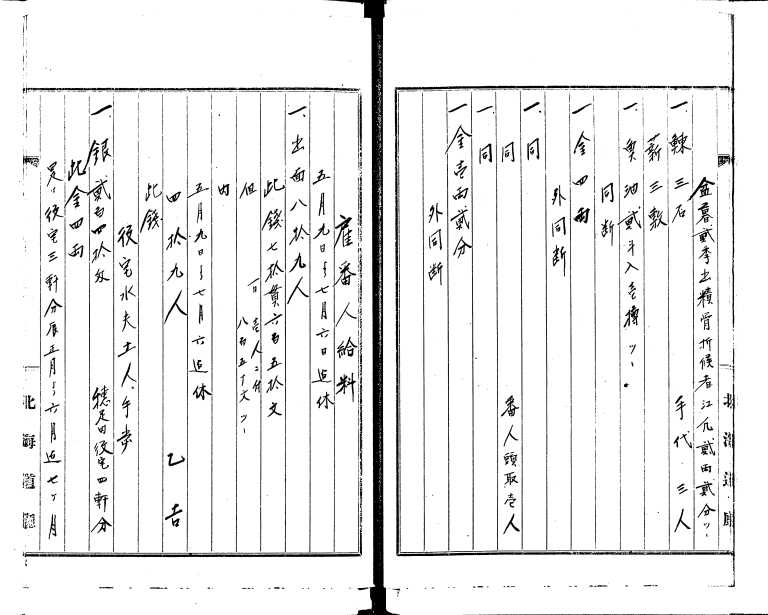 盆暮貳季出精骨折候者江金貳両貳分ツヽ
手代 三人
一 鰊三石
薪三敷
一 魚油貳斗入壱樽ツヽ
同断
一 金四両
外同断
一 同
同 番人頭取壱人
一 同
一 金壱両貳分
外同断
雇番人給料
五月九日ゟ七月六日迄休
一 出面八拾九人
此銭七拾貫六百五拾文
但 一日壱人ニ付
八百五十文ツヽ
内
五月九日ゟ七月六迄休
四拾九人 乙吉
此銭
役宅水夫土人手当
一 銀貳百四拾匁 穂足内役宅四軒分
此金四両
是ハ役宅三軒分辰正月ゟ六月迄七ヶ月
北海道廳